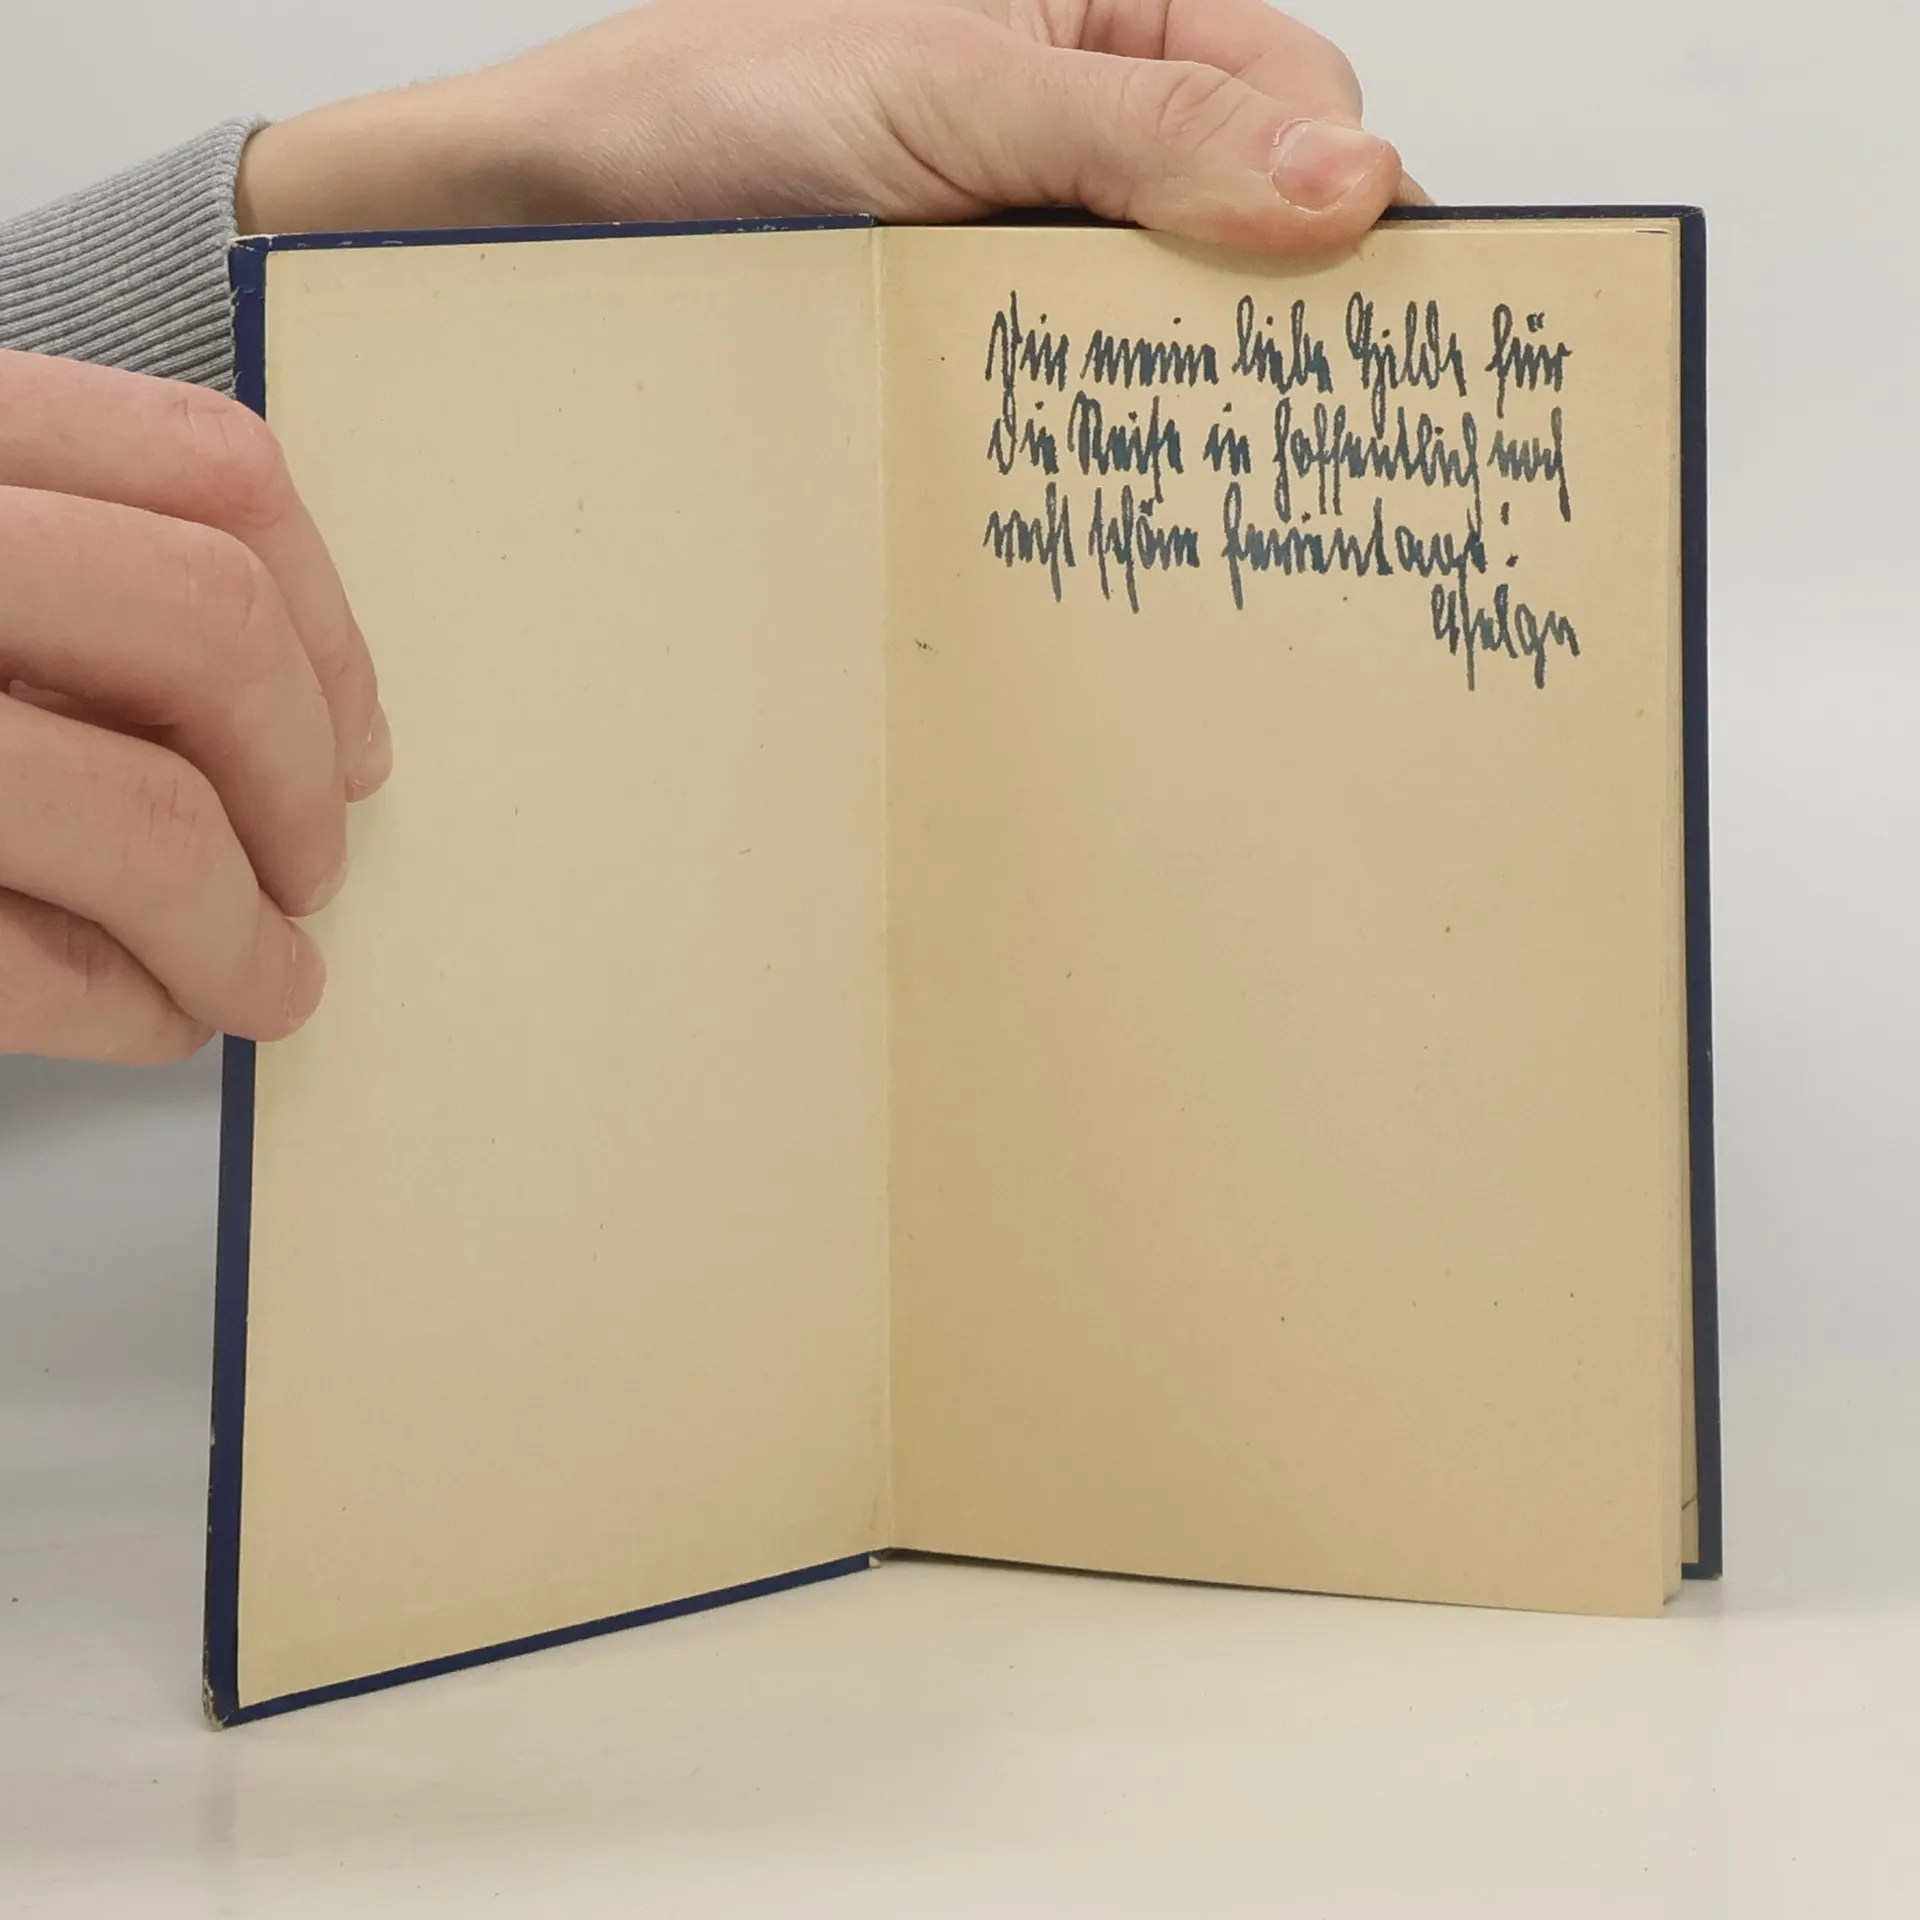 Dir meine liebe Hilde für
die Reise in hoffentlich noch
recht schöne Ferientage!
Helge